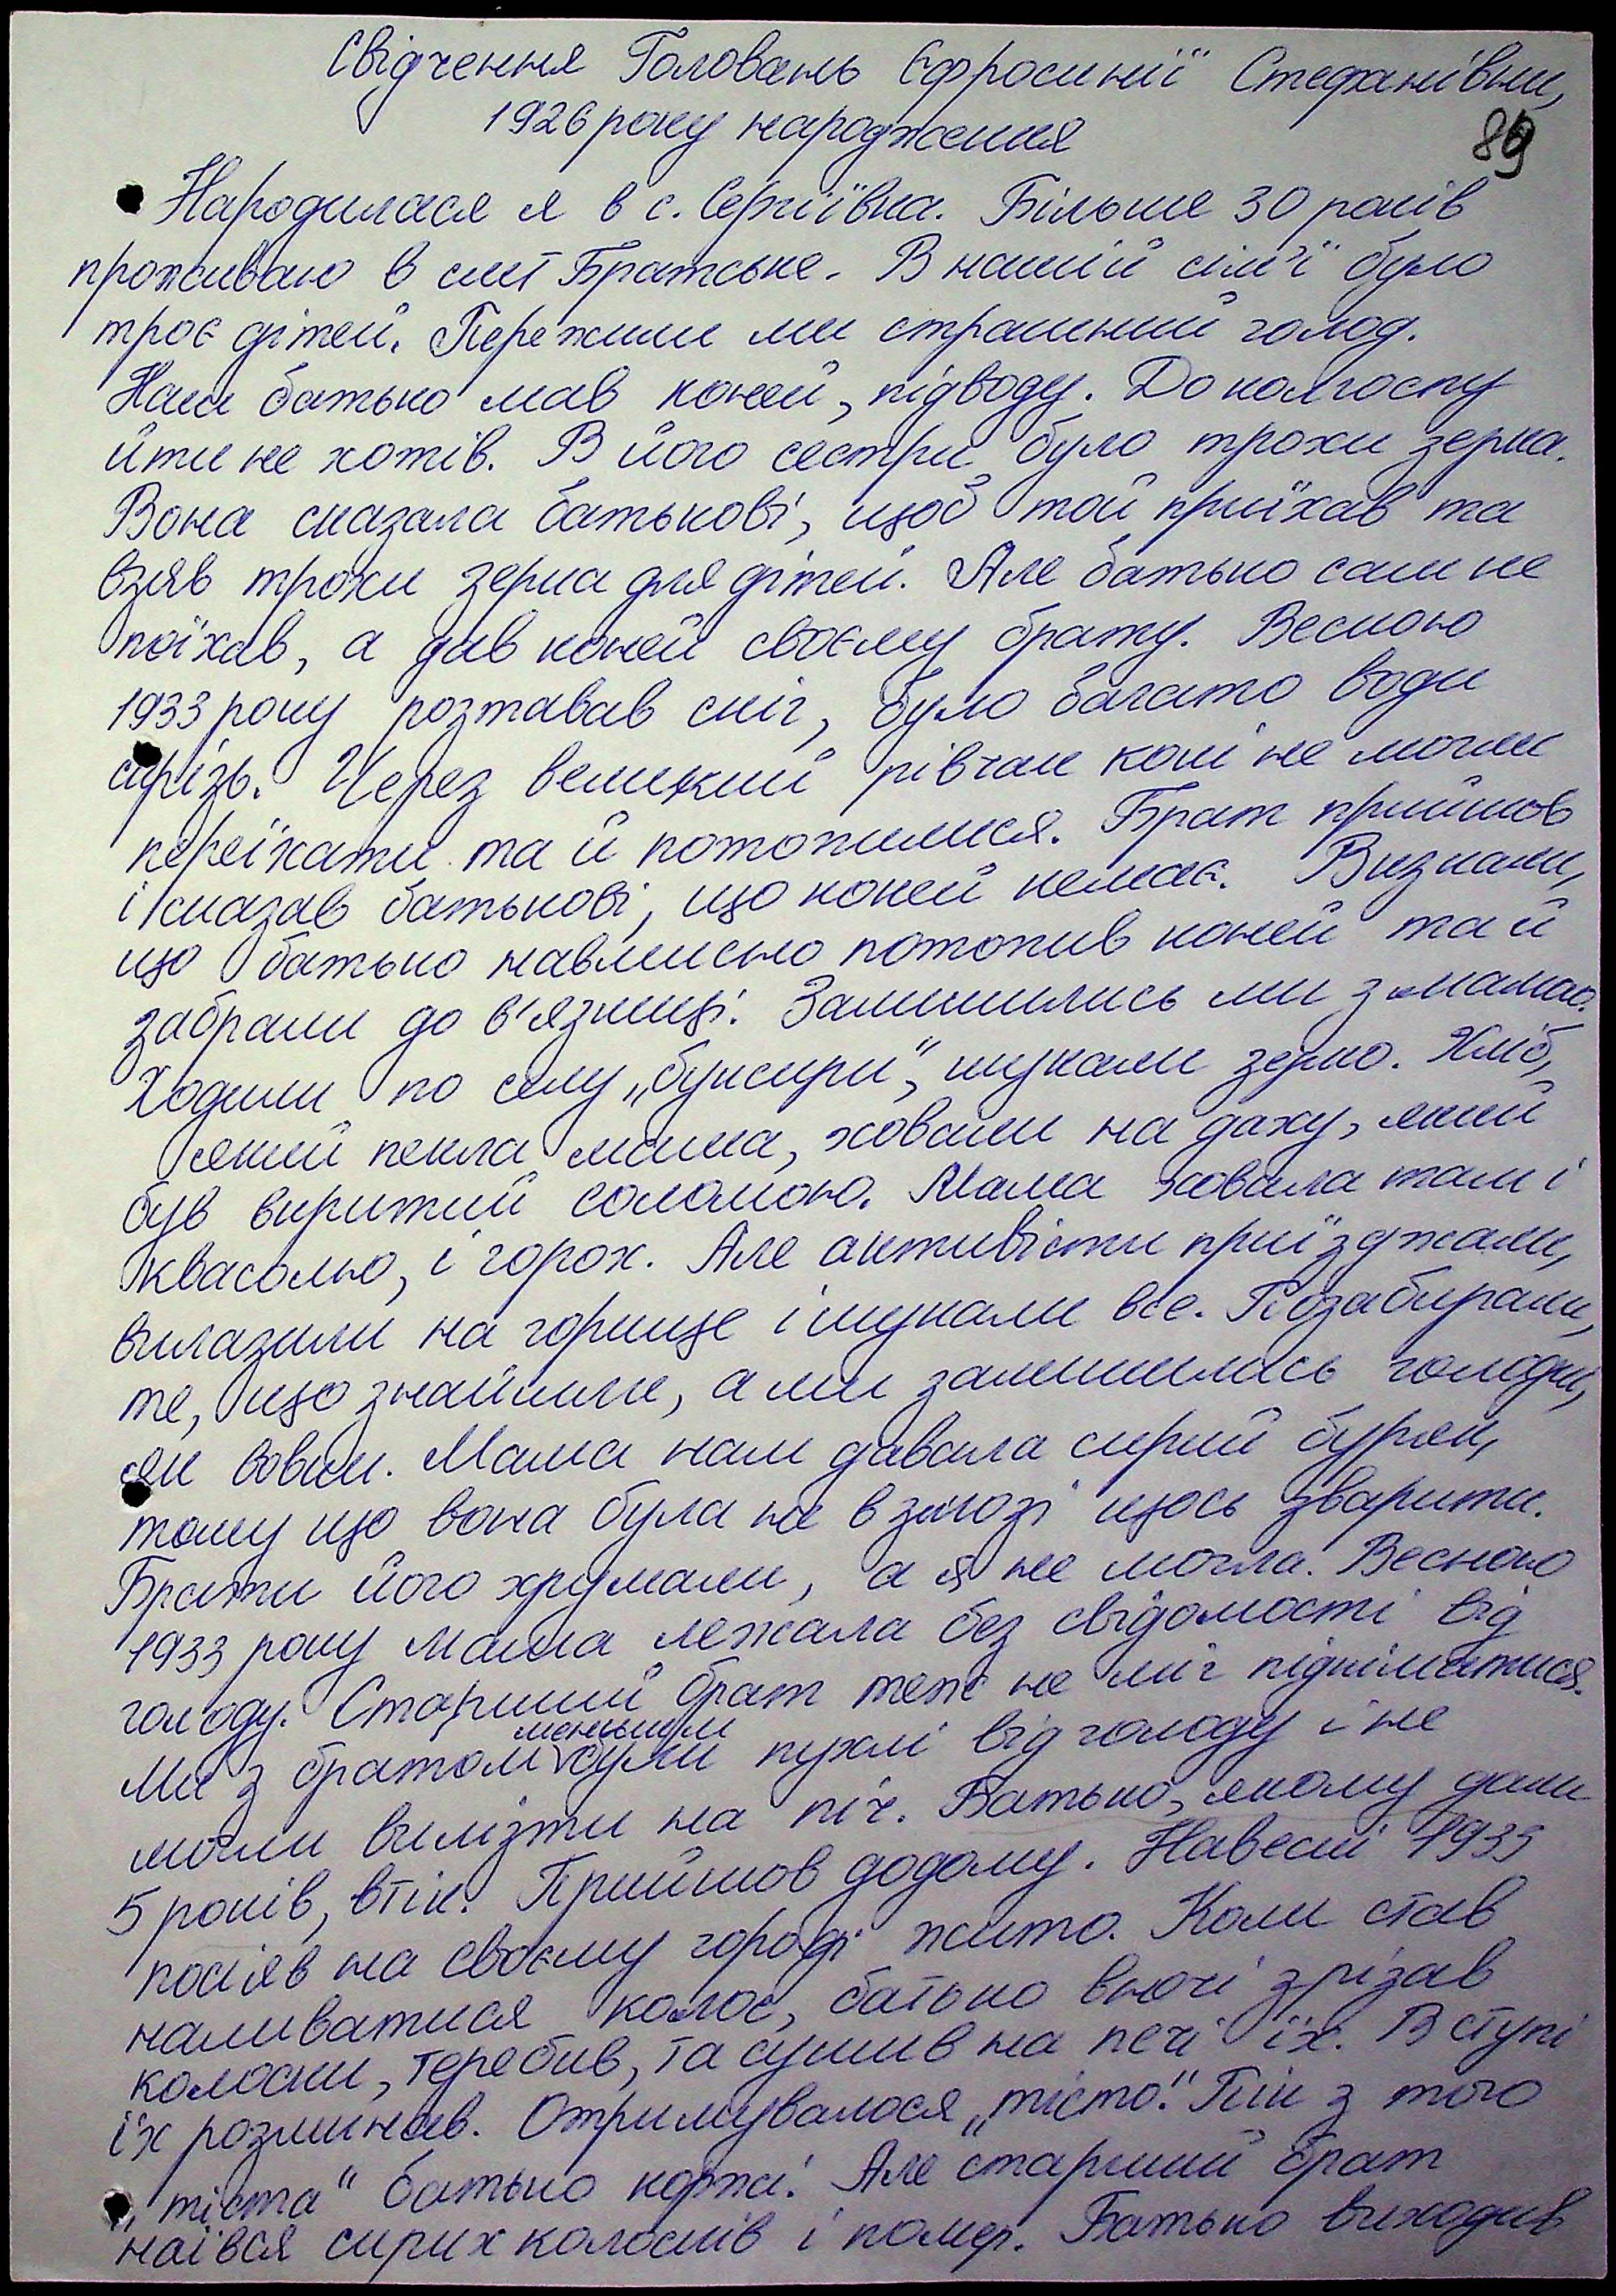 Свідчення Головань Єфросинії Стефанівни,
1926 року народження
89
Народилася я в с. Сергіївка. Більше 30 років
проживаю в смт Братське. В нашій сім'ї було
троє дітей. Пережили ми страшний голод.
Наш батько мав коней, підводу. До колгоспу
йти не хотів. В його сестри було трохи зерна.
Вона сказала батькові, щоб той приїхав та
взяв трохи зерна для дітей. Але батько сам не
поїхав, а дав коней своєму брату. Весною
1933 року розтавав сніг, було багато води
скрізь. Через великий рівчак коні не могли
переїхати та й потопилися. Брат прийшов
і сказав батькові, що коней немає. Визнали,
що батько навмисно потопив коней та й
забрали до в'язниці. Залишились ми з мамою.
Ходили по селу „буксири", шукали зерно. Хліб,
який пекла мама, ховали на даху, який
був вкритий соломою. Мама ховала там і
квасолю, і горох. Але активісти приїзджали,
вилазили на горище і шукали все. Позабирали,
те, що знайшли, а ми залишились голодні,
як вовки. Мама нам давала сирий буряк,
тому що вона була не в змозі щось зварити.
Брати його хрумали, а я не могла. Весною
1933 року мама лежала без свідомості від
голоду. Старший брат теж не міг підніматися.
Ми з братом меншим були пухлі від голоду і не
могли вилізти на піч. Батько, якому дали
5 років, втік. Прийшов додому. Навесні 1933
посіяв на своєму городі жито. Коли став
наливатися колос, батько вночі зрізав
колоски, теребив, та сушив на печі їх. В ступі
їх розминав. Отримувалося „тісто". Пік з того
„тіста" батько коржі. Але старший брат
наївся сирих колосків і помер. Батько виходив